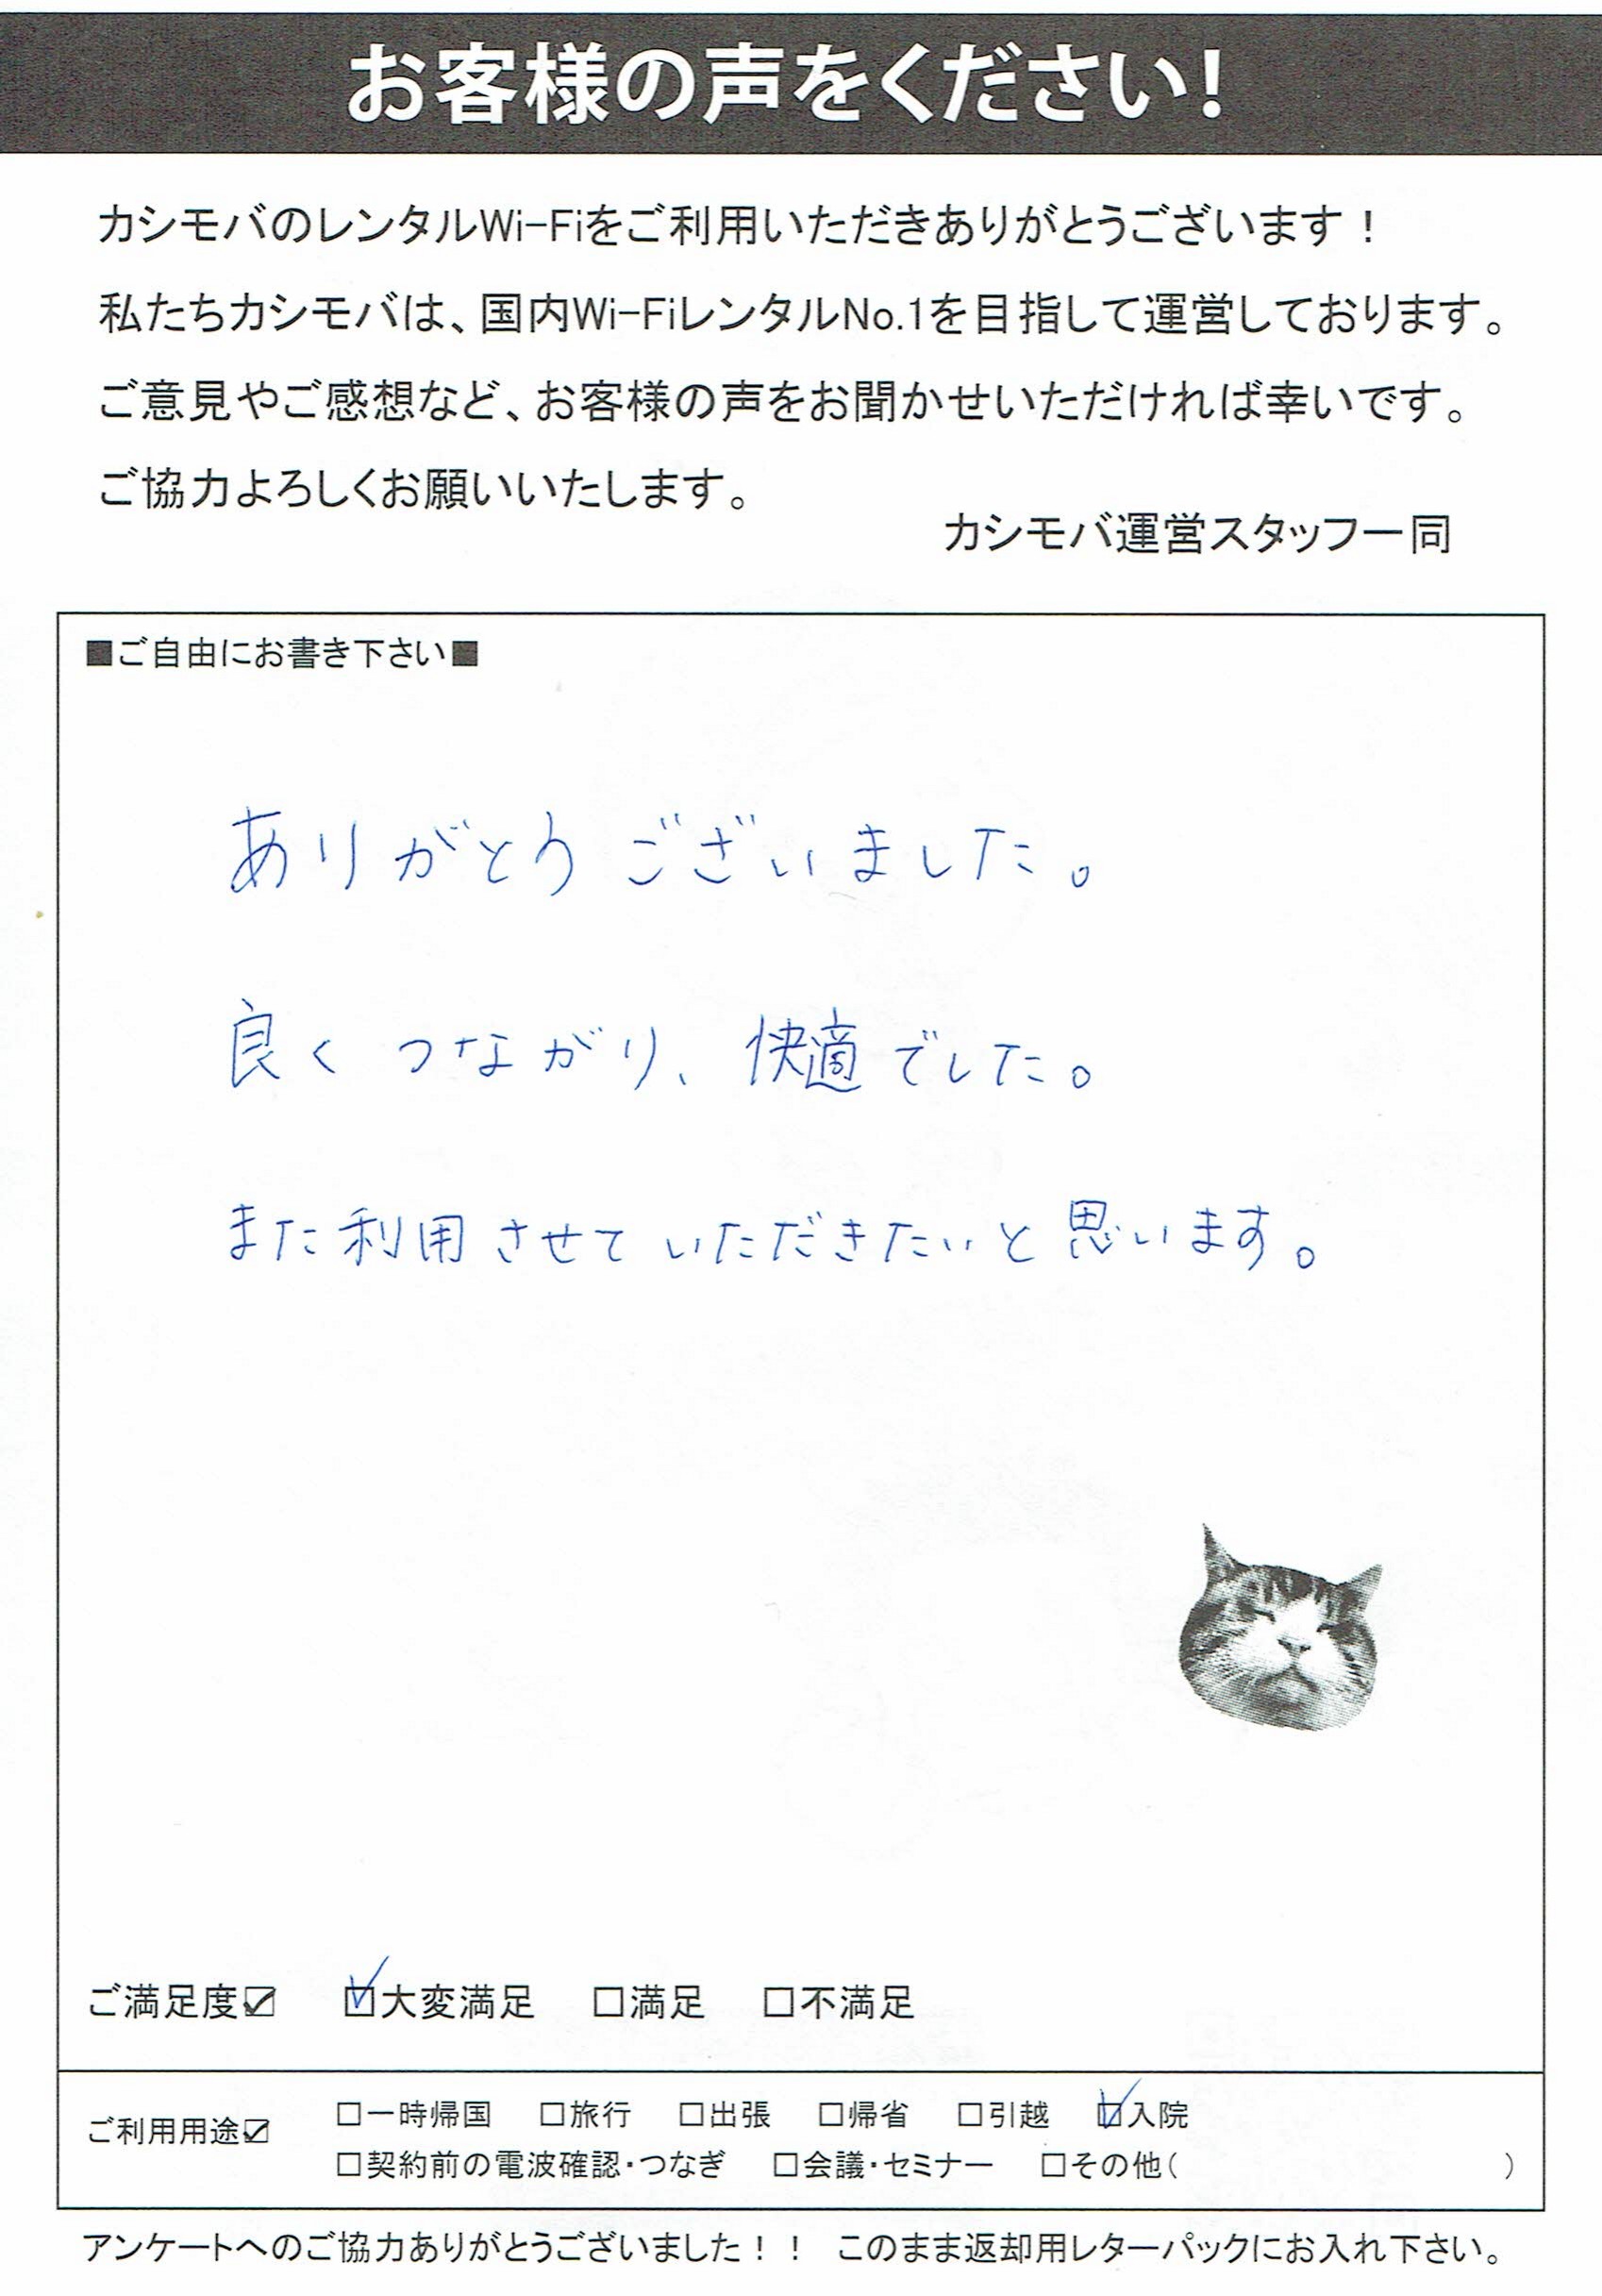 お客様の声をください!
カシモバのレンタルWi-Fiをご利用いただきありがとうございます！
私たちカシモバは、国内Wi-FiレンタルNo.1を目指して運営しております。
ご意見やご感想など、お客様の声をお聞かせいただければ幸いです。
ご協力よろしくお願いいたします。
カシモバ運営スタッフ一同
■ご自由にお書き下さい■
ありがとうございました。
良くつながり、快適でした。
また利用させていただきたいと思います。
ご満足度☑ ☑大変満足 □満足 □不満足
ご利用用途☑ □一時帰国 □旅行 □出張 □帰省 □引越 ☑入院
□契約前の電波確認・つなぎ □会議・セミナー □その他( )
アンケートへのご協力ありがとうございました！！ このまま返却用レターパックにお入れ下さい。